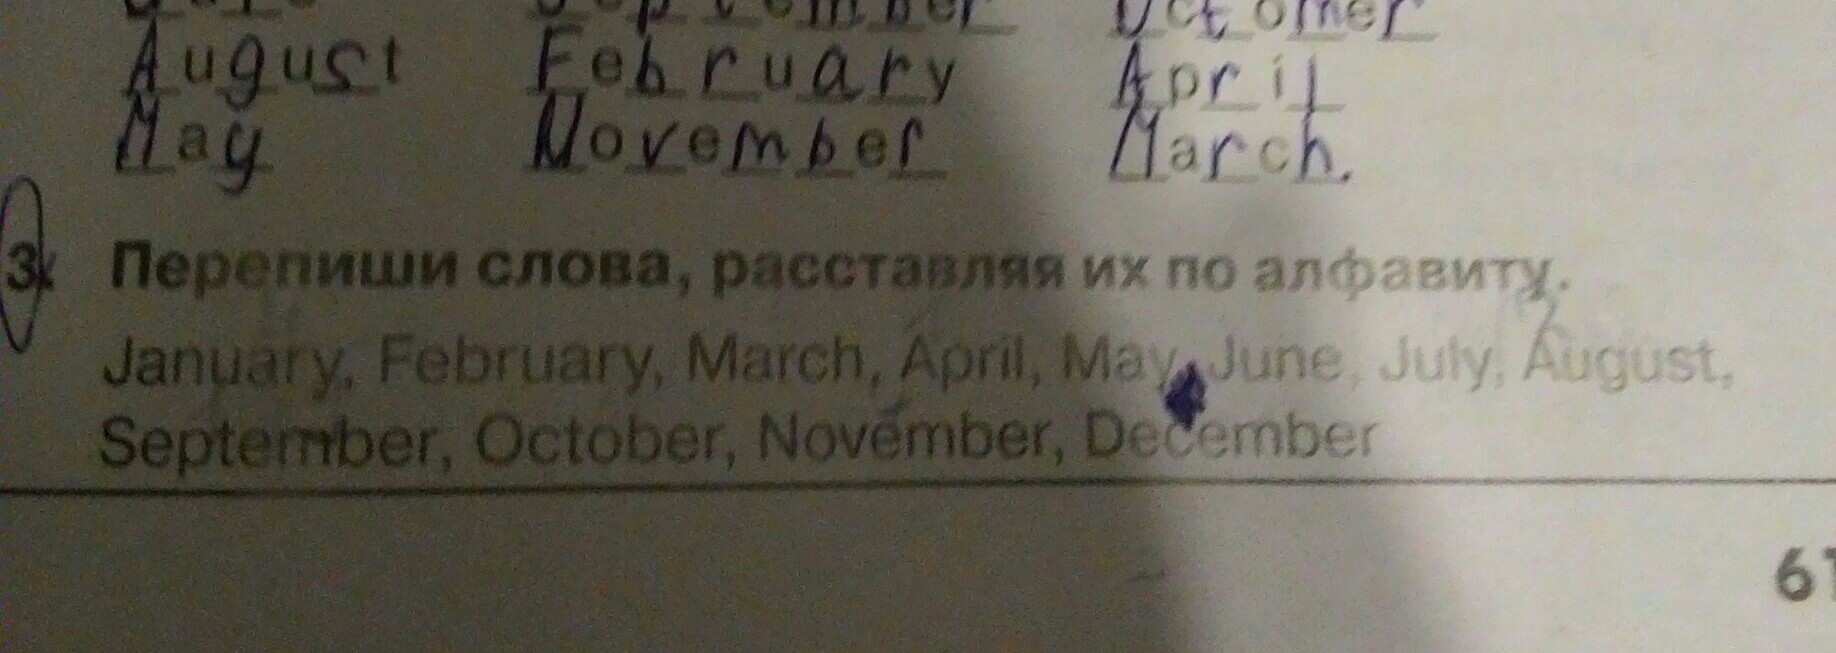 September October
August February April
May November March.
3. Перепиши слова, расставляя их по алфавиту.
January, February, March, April, May, June, July, August,
September, October, November, December
61